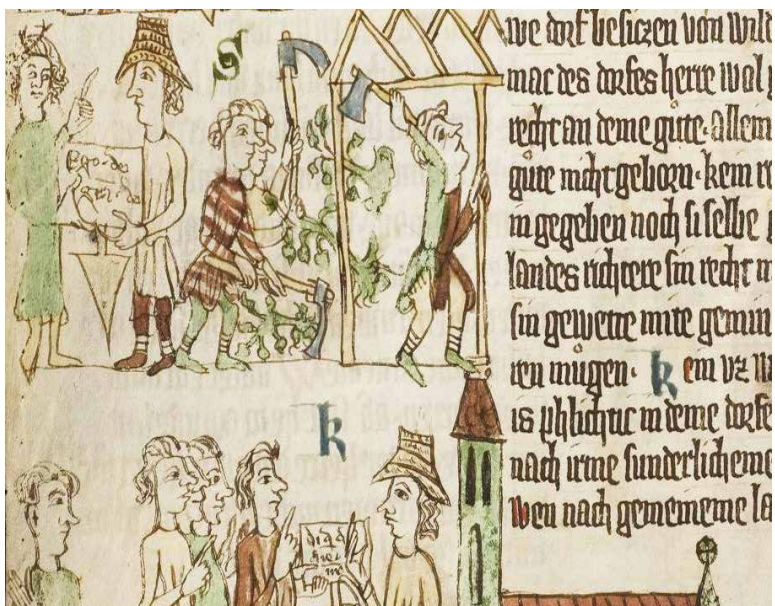 S
Ego · do
we dorf besiczen von wild
mac des dorfes herre wol
recht an deme gůte · allem
gůte nicht geborn · kein
in gegeben noch si selbe
landes richtere sin recht
sin gewette mite
ren můgen · k ein vz
is phlichtic in deme dorfe
nach irme sunderlicheme
wen nach gemeineme la
k